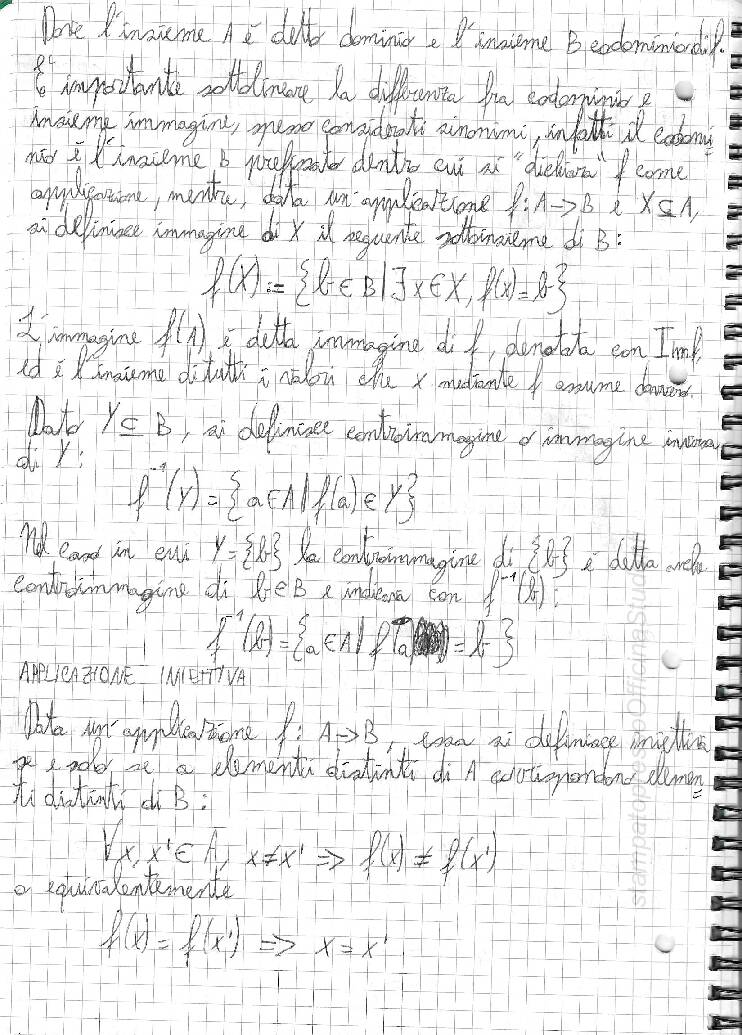 Dove l'insieme A è detto dominio e l'insieme B codominio di f.
È importante sottolineare la differenza fra codominio e
insieme immagine, spesso considerati sinonimi, infatti il codomi
nio è l'insieme B prefissato dentro cui si "dichiara" f come
applicazione, mentre, data un'applicazione f: A→B e X⊆A,
si definisce immagine di X il seguente sottoinsieme di B:
f(X) := {b∈B | ∃x∈X, f(x)=b}
L'immagine f(A) è detta immagine di f, denotata con Imf,
ed è l'insieme di tutti i valori che x mediante f assume davvero.
Dato Y⊆B, si definisce controimmagine o immagine inversa
di Y:
f⁻¹(Y) = {a∈A | f(a)∈Y}
Nel caso in cui Y={b} la controimmagine di {b} è detta anche
controimmagine di b∈B e indicata con f⁻¹(b):
f⁻¹(b) = {a∈A | f(a) = b}
APPLICAZIONE INIETTIVA
Data un'applicazione f: A→B, essa si definisce iniettiva
se e solo se a elementi distinti di A corrispondono elemen
ti distinti di B:
∀x, x'∈A, x≠x' ⇒ f(x) ≠ f(x')
o equivalentemente
f(x) = f(x') ⇒ x = x'
stampatopressoOfficinaStud